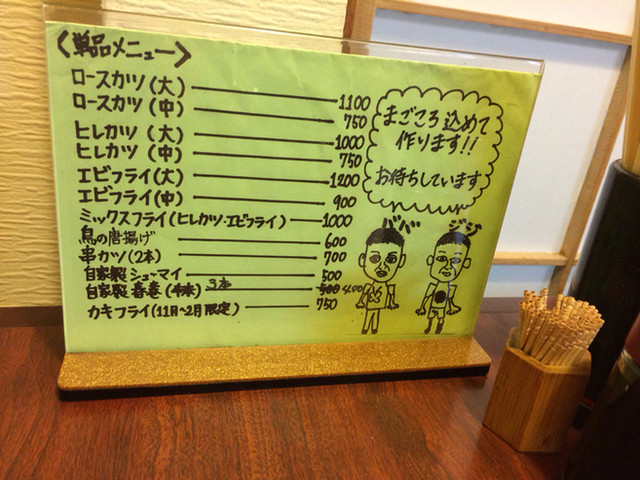 〈単品メニュー〉
ロースカツ(大) 1100
ロースカツ(中) 750
ヒレカツ(大) 1000
ヒレカツ(中) 750
エビフライ(大) 1200
エビフライ(中) 900
ミックスフライ(ヒレカツ・エビフライ) 1000
鳥の唐揚げ 600
串カツ(2本) 700
自家製シューマイ 500
自家製春巻(4本) 3本 500 400
カキフライ(11月~2月限定) 750
まごころ込めて
作ります!!
お待ちしています
ババ
ジジ